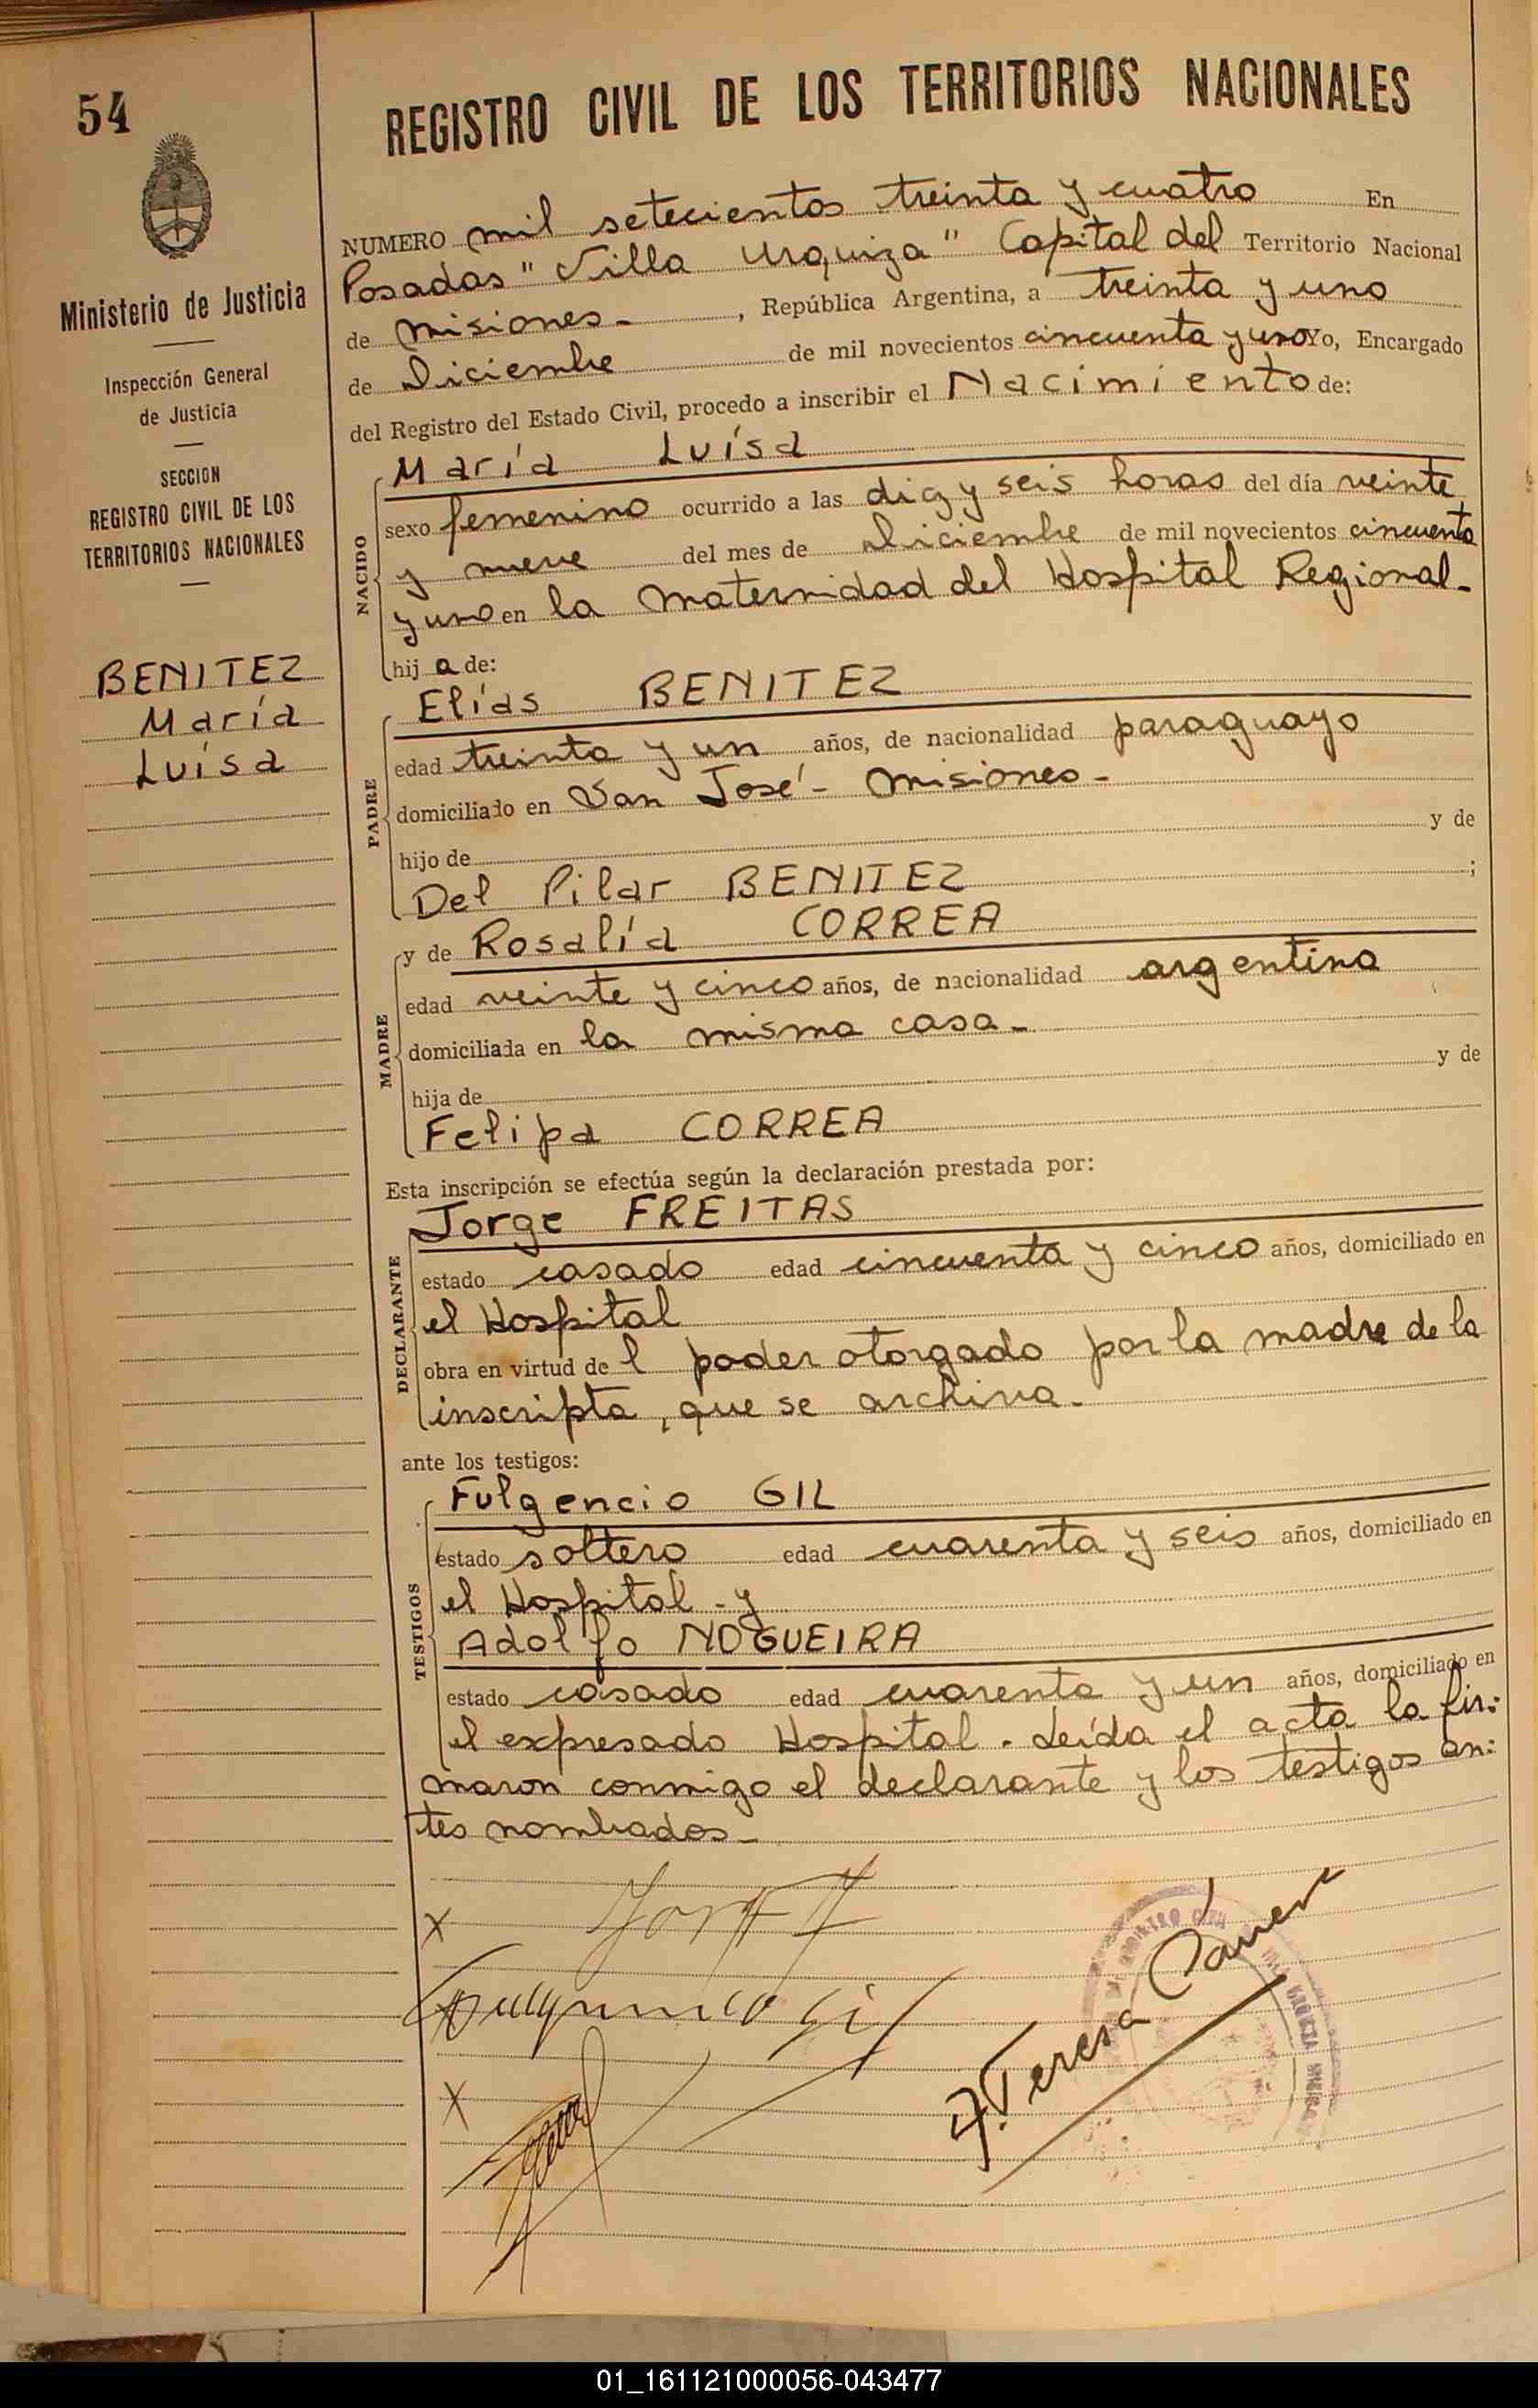 54
Ministerio de Justicia
Inspección General
de Justicia
SECCION
REGISTRO CIVIL DE LOS
TERRITORIOS NACIONALES
BENITEZ
María
Luísa
REGISTRO CIVIL DE LOS TERRITORIOS NACIONALES
NUMERO mil setecientos treinta y cuatro En
Posadas "Villa Urquiza" Capital del Territorio Nacional
de Misiones.-, República Argentina, a treinta y uno
de Diciembre de mil novecientos cincuenta y uno Yo, Encargado
del Registro del Estado Civil, procedo a inscribir el Nacimiento de:
NACIDO
María Luísa
sexo femenino ocurrido a las diez y seis horas del día veinte
y nueve del mes de Diciembre de mil novecientos cincuenta
y uno en la Maternidad del Hospital Regional.-
hij a de:
PADRE
Elías BENITEZ
edad treinta y un años, de nacionalidad paraguayo
domiciliado en San José - Misiones -
hijo de y de
Del Pilar BENITEZ ;
MADRE
y de Rosalía CORREA
edad veinte y cinco años, de nacionalidad argentina
domiciliada en la misma casa.-
hija de y de
Felipa CORREA
Esta inscripción se efectúa según la declaración prestada por:
DECLARANTE
Jorge FREITAS
estado casado edad cincuenta y cinco años, domiciliado en
el Hospital
obra en virtud de l poder otorgado por la madre de la
inscripta, que se archiva.-
ante los testigos:
TESTIGOS
Fulgencio GIL
estado soltero edad cuarenta y seis años, domiciliado en
el Hospital - y
Adolfo NOGUEIRA
estado casado edad cuarenta y un años, domiciliado en
el expresado Hospital. Leída el acta la fir:
maron conmigo el declarante y los testigos an:
tes nombrados.-
X
Fulgencio Gil
X
F. Teresa
01_161121000056-043477